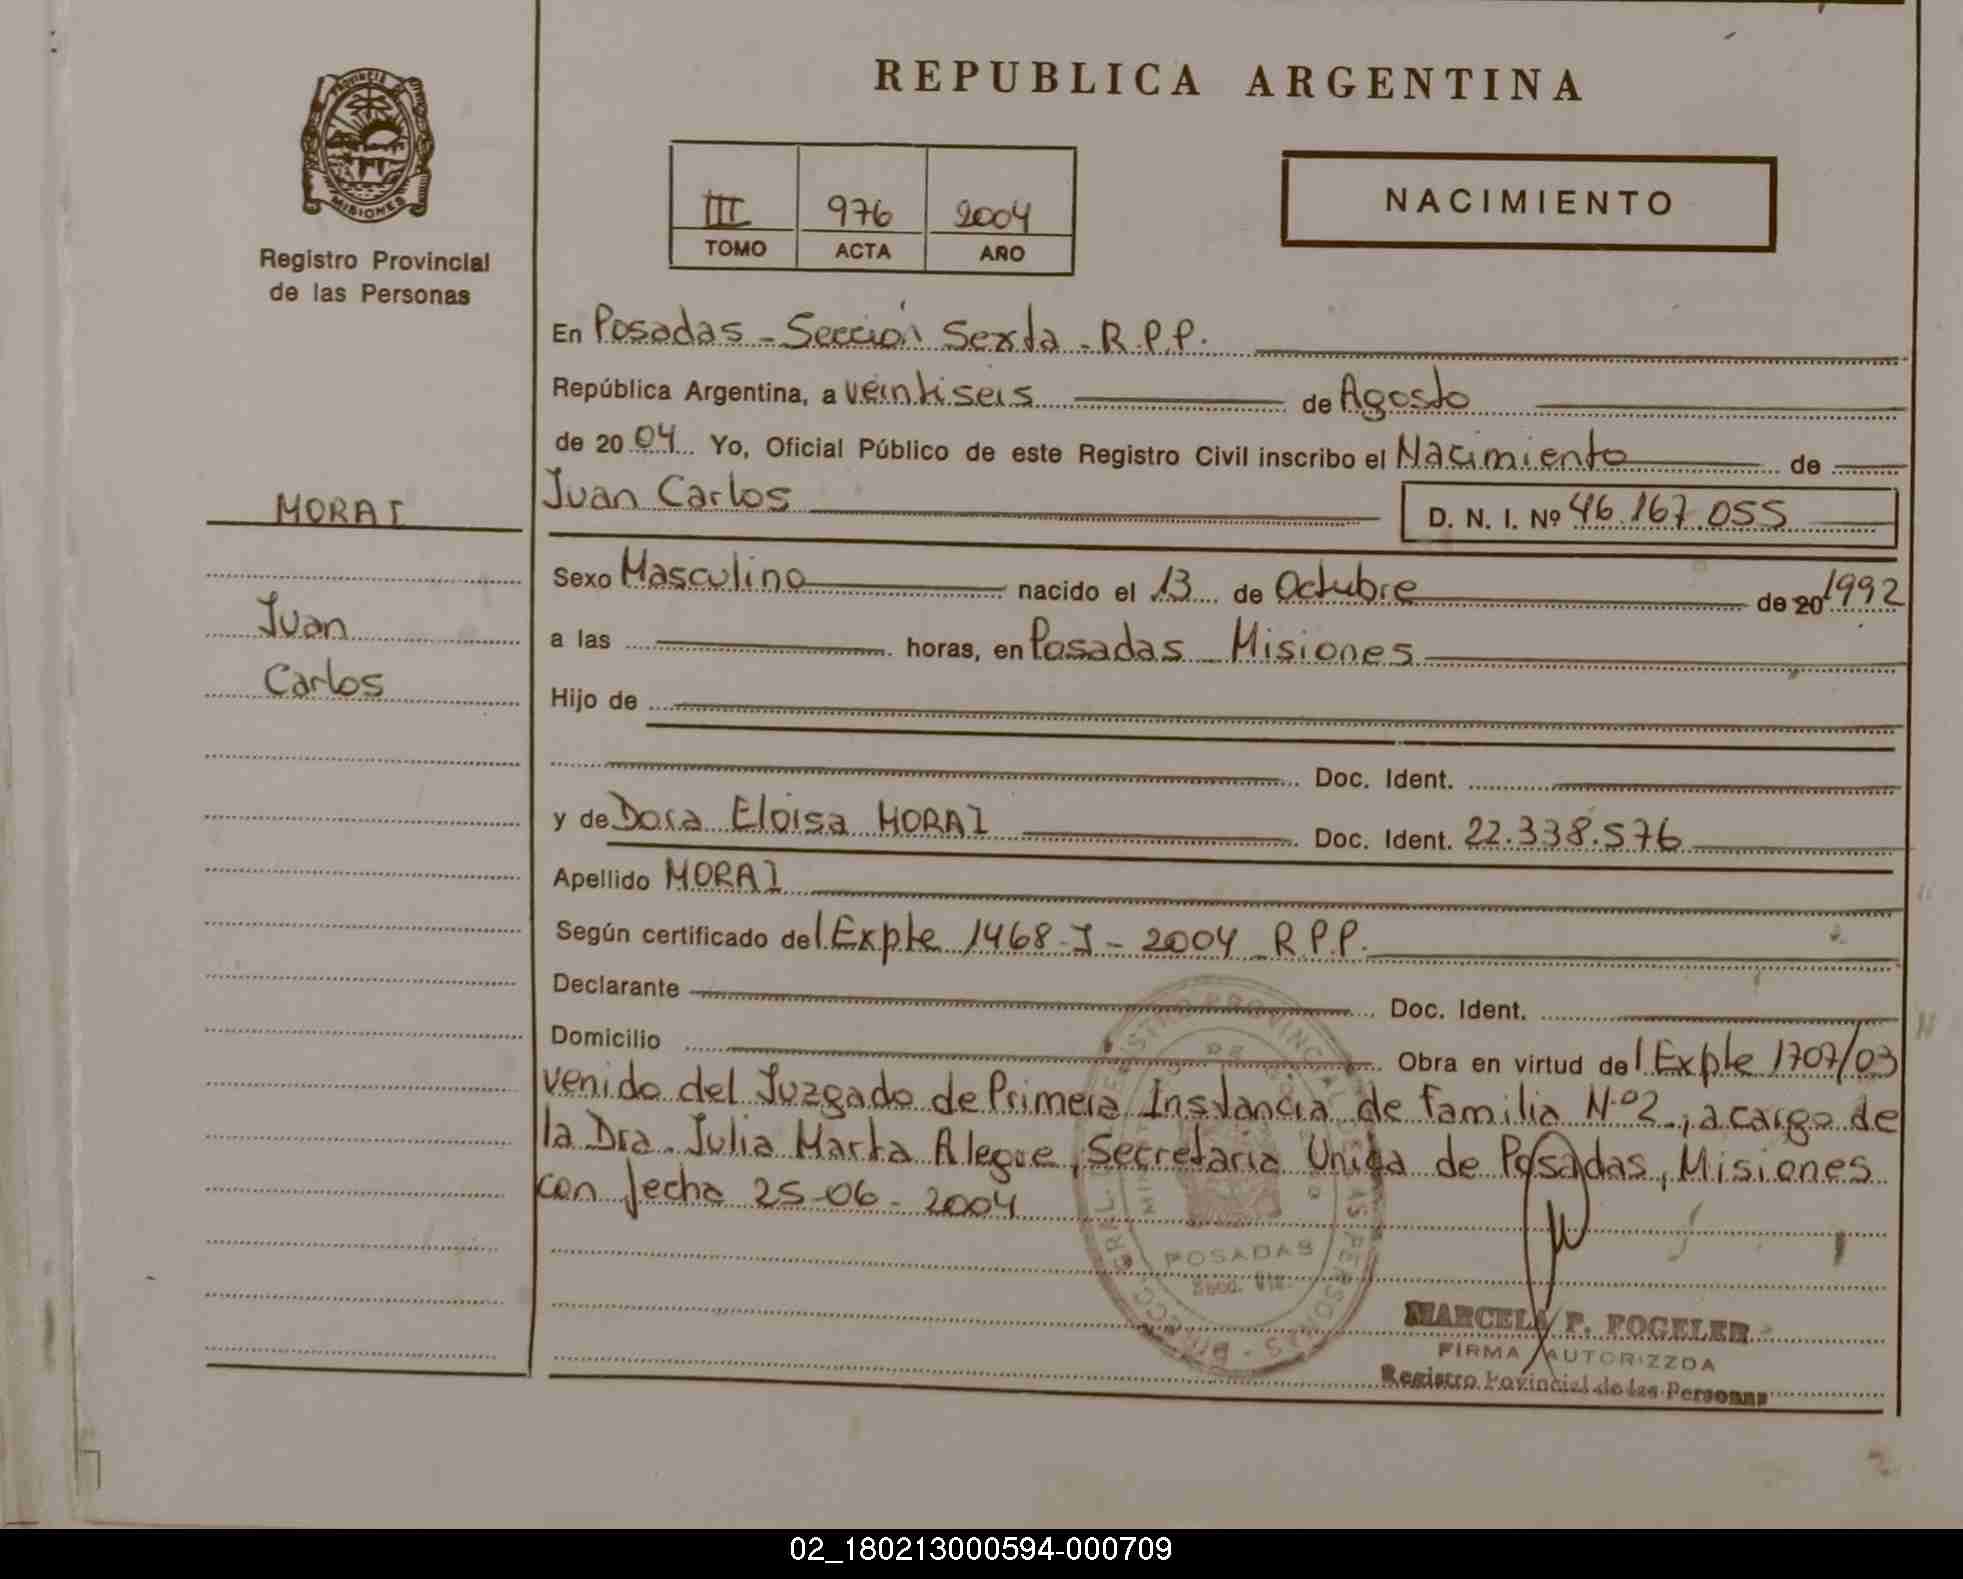 PROVINCIA DE
MISIONES
Registro Provincial
de las Personas
REPUBLICA ARGENTINA
III 976 2004
TOMO ACTA AÑO
NACIMIENTO
En Posadas - Sección Sexta - R.P.P.
República Argentina, a veintiseis de Agosto
de 2004 Yo, Oficial Público de este Registro Civil inscribo el Nacimiento de
MORAI
Juan Carlos D. N. I. Nº 46.167.055
Sexo Masculino nacido el 13 de Octubre de 20 1992
Juan
Carlos
a las horas, en Posadas Misiones
Hijo de
Doc. Ident.
y de Dora Eloisa MORAI Doc. Ident. 22.338.576
Apellido MORAI
Según certificado del Expte 1468-J-2004 R.P.P.
Declarante Doc. Ident.
Domicilio Obra en virtud del Expte 1707/03
venido del Juzgado de Primera Instancia de familia Nº2, a cargo de
la Dra. Julia Marta Alegre, Secretaria Unica de Posadas, Misiones
con fecha 25-06-2004
POSADAS
MARCELA F. FOGELER
FIRMA AUTORIZZDA
Registro Provincial de las Personas
02_180213000594-000709